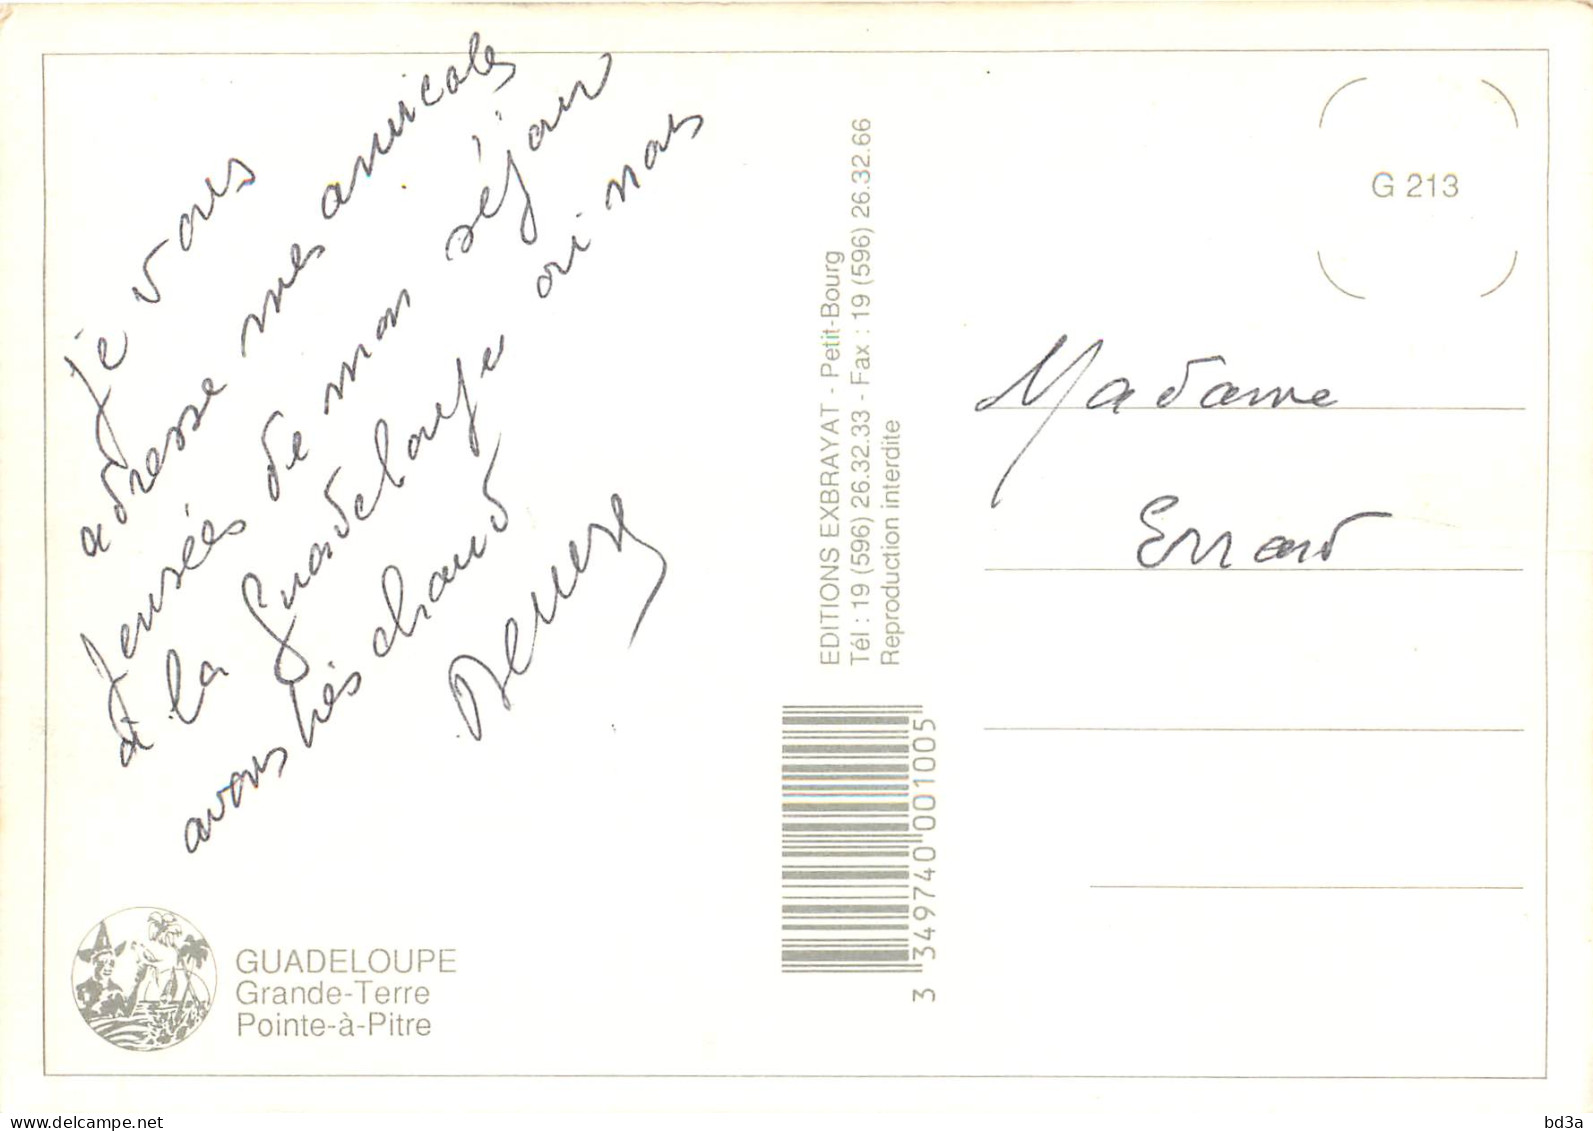 Je vous
adresse mes amicales
pensées de mon séjour
à la Guadeloupe où nous
avons très chaud
GUADELOUPE
Grande-Terre
Pointe-à-Pitre
EDITIONS EXBRAYAT - Petit-Bourg
Tél : 19 (596) 26.32.33 - Fax : 19 (596) 26.32.66
Reproduction interdite
3 349740 001005
G 213
Madame
Errard
delcampe.net
bd3a